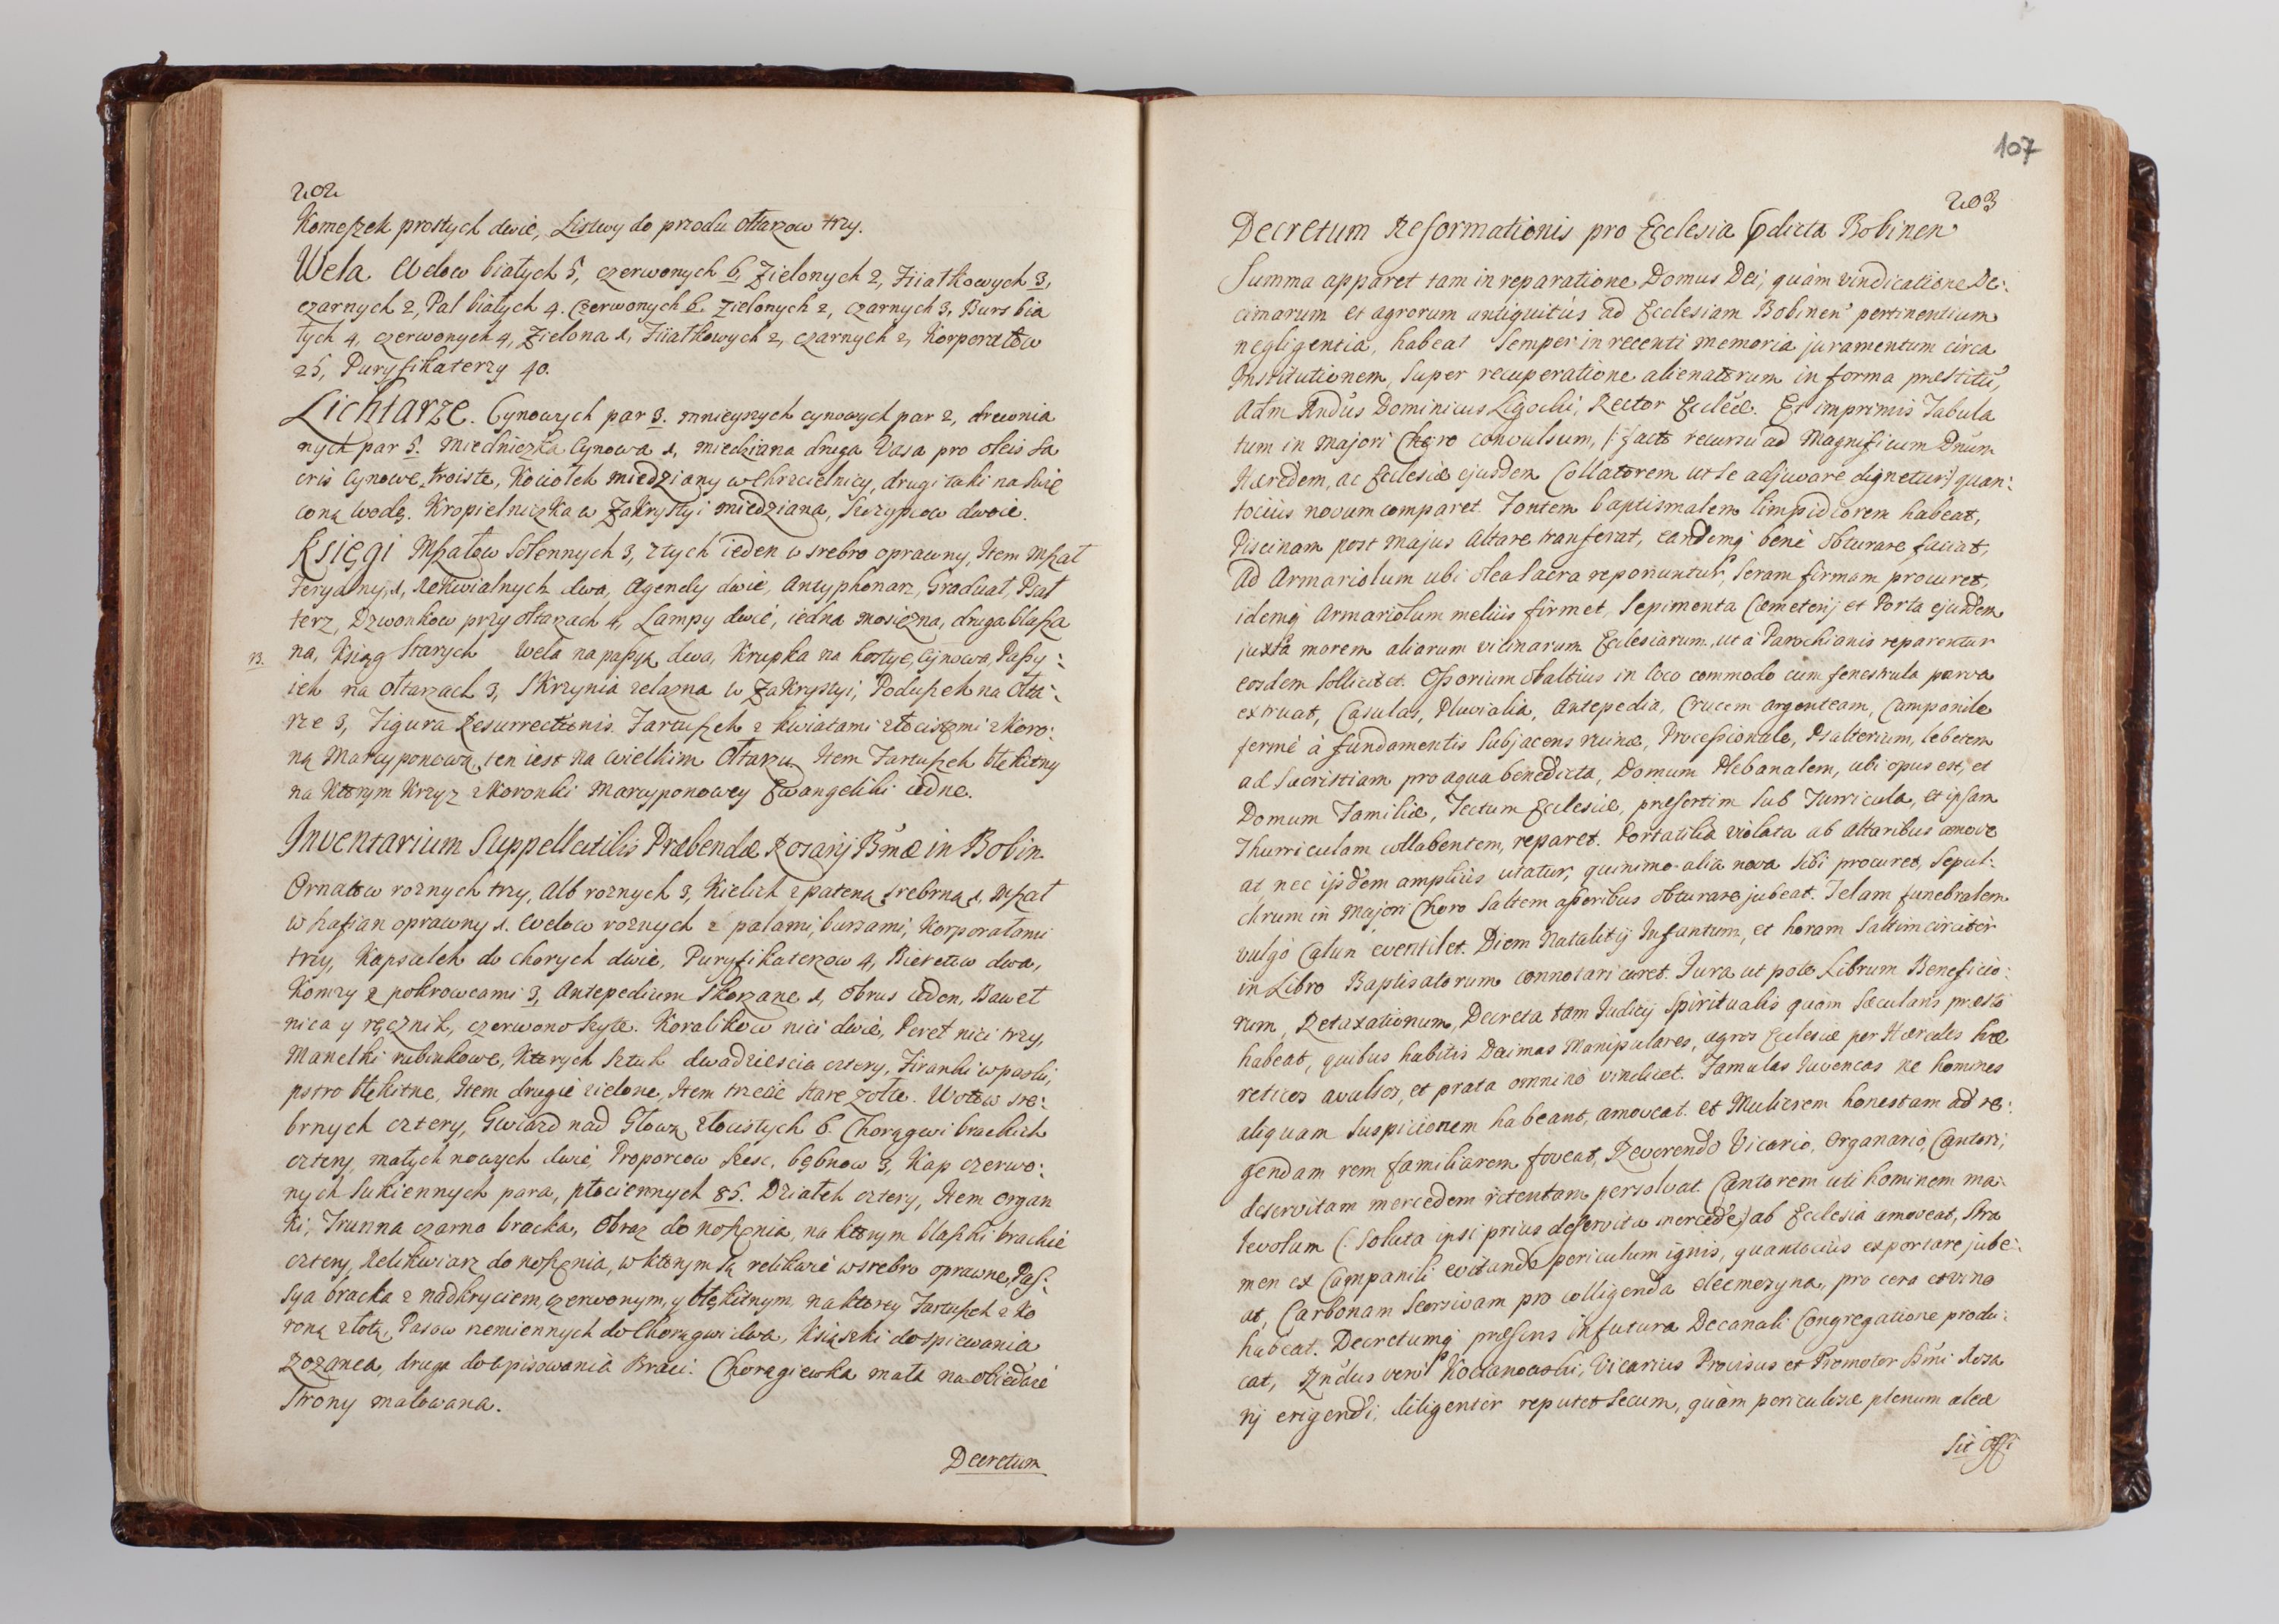 202
Komeszek prostych dwie, Listwy do przodu ołtarzow trzy.
Wela Welow białych 5, czerwonych 6, Zielonych 2, Fiiałkowych 3,
czarnych 2, Pal białych 4. Czerwonych 6. zielonych 2, czarnych 3, Burs bia
łych 4, czerwonych 4, Zielona 1, Fiiałkowych 2, czarnych 2, Korporałow
25, Puryfikaterzy 40.
Lichtarze. Cynowych par 3. mnieyszych cynowych par 2, drewnia
nych par 5. Miedniczka Cynowa 1, miedziana druga Vasa pro oleis Sa
cris Cynowe, troiste, Kociołek miedziany w Chrzcielnicy, drugi taki na świę
coną wodę. Kropielniczka w Zakrystyi miedziana, Skrzypcow dwoie.
Księgi Mszałow Solennych 3, z tych ieden w srebro oprawny, Item Mszał
Feryalny, 1, Rekwialnych dwa, Agendy dwie, Antyphonarz, Graduał, Psał
terz, Dzwonkow przy ołtarzach 4, Lampy dwie, iedna mosiężna, druga blasza
13. na, Ksiąg Starych Wela na pasyą dwa, Krupka na hostye, Cynowa, Passy:
iek na ołtarzach 3, Skrzynia żelazna w Zakrystyi, Poduszek na Ołta:
rze 3, Figura Resurrectionis. Fartuszek z kwiatami złocistemi z Koro:
ną Marcyponową, ten iest na wielkim Ołtarzu Item Fartuszek błękitny
na Ktorym Krzyz z Koronki Marcyponowey Ewangeliki iedne.
Inventarium Suppellectilis Præbendæ Rosarij Bmæ in Bobin.
Ornatow roznych trzy, Alb roznych 3, Kielich z pateną srebrną 1, Mszał
w safian oprawny 1. Welow roznych z palami, bursami, Korporałami
trzy, Kapsalek do chorych dwie, Puryfikaterzow 4, Biretow dwa,
Komzy z pokrowcami 3, Antepedium Skorzane 1, Obrus ieden, Bawet
nica y ręcznik, czerwono szyte. Koralikow nici dwie, Pereł nici trzy,
Manelki rubinkowe, Ktorych sztuk dwadziescia cztery, Firanki w paski,
pstro błękitne, Item drugie zielone, Item trzecie stare zołte. Wotow sre:
brnych cztery, Gwiazd nad Głową złocistych 6. Chorągwi brackich
cztery, małych nowych dwie, Proporcow szesc, bębnow 3, Kap czerwo:
nych Sukiennych para, płociennych 85. Działek cztery, Item organ
ki, Trunna czarna bracka, Obraz do noszenia, na ktorym blaszki brackie
cztery, Relikwiarz do noszenia, w ktorym są relikwie w srebro oprawne, Pas:
sya bracka z nadkryciem, czerwonym, y błękitnym, na ktorey Fartuszek z Ko
roną złotą, Pasow rzemiennych do Chorągwi dwa, Ksiąszki do spiewania
Rozanca, druga do wpisowania Braci. Chorągiewka mała na obiedwie
strony malowana.
Decretum
107
203
Decretum Reformationis pro Ecclesia pdicta Bobinen
Summa apparet tam in reparatione Domus Dei, quàm vindicatione De:
cimarum et agrorum antiquitùs ad Ecclesiam Bobinen pertinentium
negligentia, habeat Semper in recenti memoria juramentum circa
Institutionem, super recuperatione alienatorum in forma præstitũ,
Adm Rndus Dominicus Ligocki, Rector Ecclæ. Et imprimis Tabula
tum in majori Choro convulsum, /: facto recursu ad Magnificum Dnum
Hæredem, ac Ecclesiæ ejusdem Collatorem ut se adjuvare dignetur :/ quan:
tociùs novum comparet. Fontem baptismalem limpidiorem habeat,
Piscinam post majus Altare transferat, eandemq́ benè obturare faciat,
Ad Armariolum ubi olea Sacra reponuntur, seram firmam procuret,
idemq́ Armariolum meliùs firmet, Sepimenta Cœmeterij et Porta ejusdem
juxtà morem aliarum vicinarum Ecclesiarum, ut à Parochianis reparentur
eosdem Sollicitet. Ossorium obaltius in loco commodo cum fenestrula parva
extruat, Casulas, Pluvialia, Antepedia, Crucem argenteam, Campanile
fermè à fundamentis Subjacens ruinæ, Processionale, Psalterium, lebetem
ad Sacristiam pro aqua benedicta, Domum Plebanalem, ubi opus est, et
Domum Familiæ, Tectum Ecclesiæ, præsertim sub Turricula, et ipsam
Thurriculam collabentem, reparet. Portatilia violata ab altaribus amove
at, nec ijsdem ampliùs utatur, quinimo alia nova sibi procuret, Sepul:
chrum in Majori Choro saltem asseribus obturare jubeat. Telam funebralem
vulgò Całun eventilet. Diem Natalitij Infantum, et horam saltim circiter
in Libro Baptisatorum connotari curet. Jura ut pote Librum Beneficio:
rum, Retaxationum, Decreta tam Judicij Spiritualis quàm Sæcularis præsto
habeat, quibus habitis Decimas Manipulares, agros Ecclesiæ per Hæredes hæ
reticos avulsos, et prata omninò vindicet. Famulas Juvencas ne homines
aliquam Suspicionem habeant, amoveat. et Mulierem honestam ad re:
gendam rem familiarem foveat, Reverendo Vicario, Organario, Cantori,
deservitam mercedem retentam persolvat. Cantorem uti hominem ma:
levolum (: soluta ipsi prius deservita mercede :) ab Ecclesia amoveat, Stra
men ex Campanili evitando periculum ignis, quantociùs exportare jube:
at, Carbonam Seorsivam pro colligenda eleemozyna, pro cera et vino
habeat. Decretumq́ præsens in futura Decanali Congregatione produ:
cat, Rndus verò Kochanowski, Vicarius Provisus et Promotor Ssmi Rosa
rij erigendi, diligentèr reputet secum, quàm periculosæ plenum aleæ
sit Offi